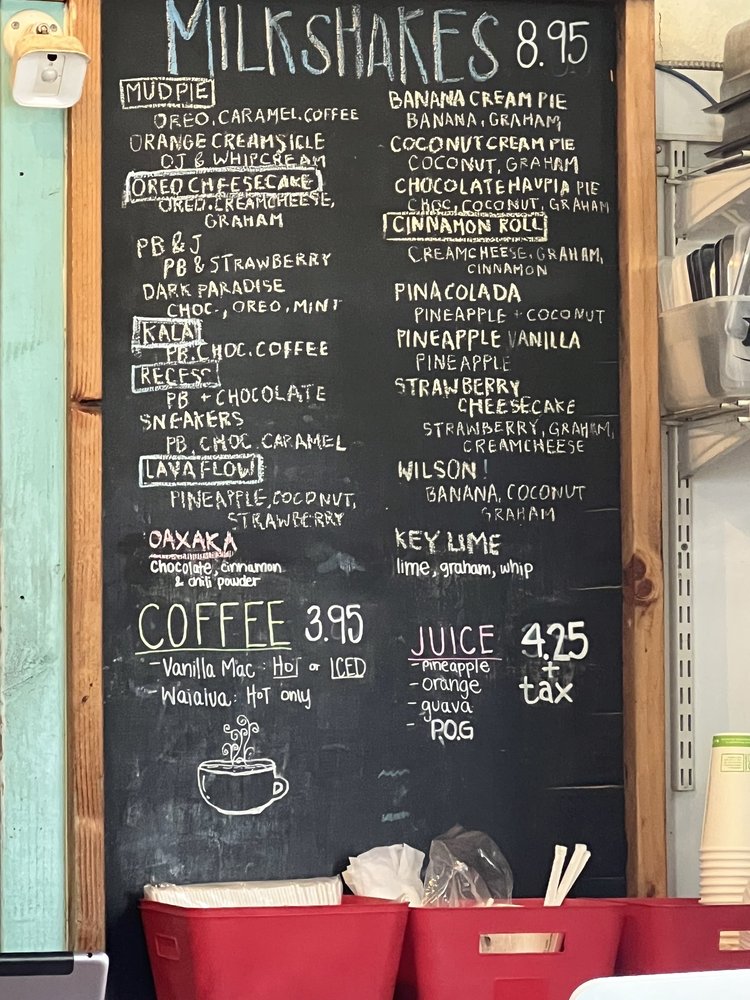 MILKSHAKES 8.95
MUD PIE
OREO, CARAMEL, COFFEE
ORANGE CREAMSICLE
OJ & WHIPCREAM
OREO CHEESECAKE
OREO, CREAMCHEESE,
GRAHAM
PB & J
PB & STRAWBERRY
DARK PARADISE
CHOC., OREO, MINT
KALA
PB, CHOC. COFFEE
RECESS
PB + CHOCOLATE
SNEAKERS
PB, CHOC, CARAMEL
LAVA FLOW
PINEAPPLE, COCONUT,
STRAWBERRY
OAXAKA
Chocolate, cinnamon
& chili powder
BANANA CREAM PIE
BANANA, GRAHAM
COCONUT CREAM PIE
COCONUT, GRAHAM
CHOCOLATE HAUPIA PIE
CHOC, COCONUT, GRAHAM
CINNAMON ROLL
CREAMCHEESE, GRAHAM,
CINNAMON
PINACOLADA
PINEAPPLE + COCONUT
PINEAPPLE VANILLA
PINEAPPLE
STRAWBERRY
CHEESECAKE
STRAWBERRY, GRAHAM,
CREAMCHEESE
WILSON!
BANANA, COCONUT
GRAHAM
KEY LIME
lime, graham, whip
COFFEE 3.95
- Vanilla Mac: HOT or ICED
- Waialua: HOT only
JUICE 4.25
+
tax
- Pineapple
- orange
- guava
- P.O.G